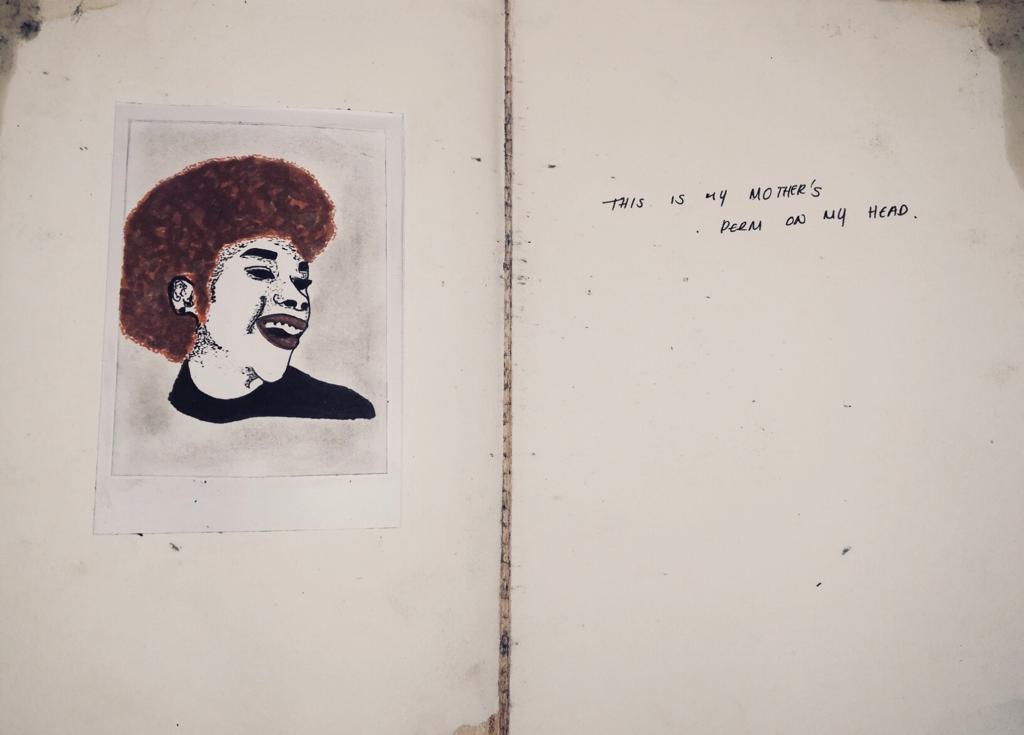 THIS IS MY MOTHER'S
PERM ON MY HEAD.